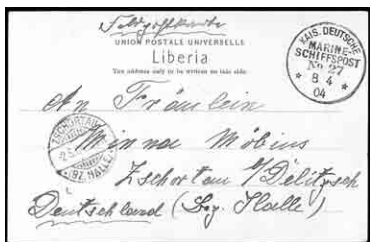 Feldpostkarte
UNION POSTALE UNIVERSELLE
Liberia
The address only to be written on this side.
KAIS. DEUTSCHE
MARINE-
SCHIFFSPOST
No 27
8 4
04
An Fräulein
Minna Möbius
ZSCHORTAU
(BZ. HALLE)
Zschortau b/Delitzsch
Deutschland (Bez. Halle)